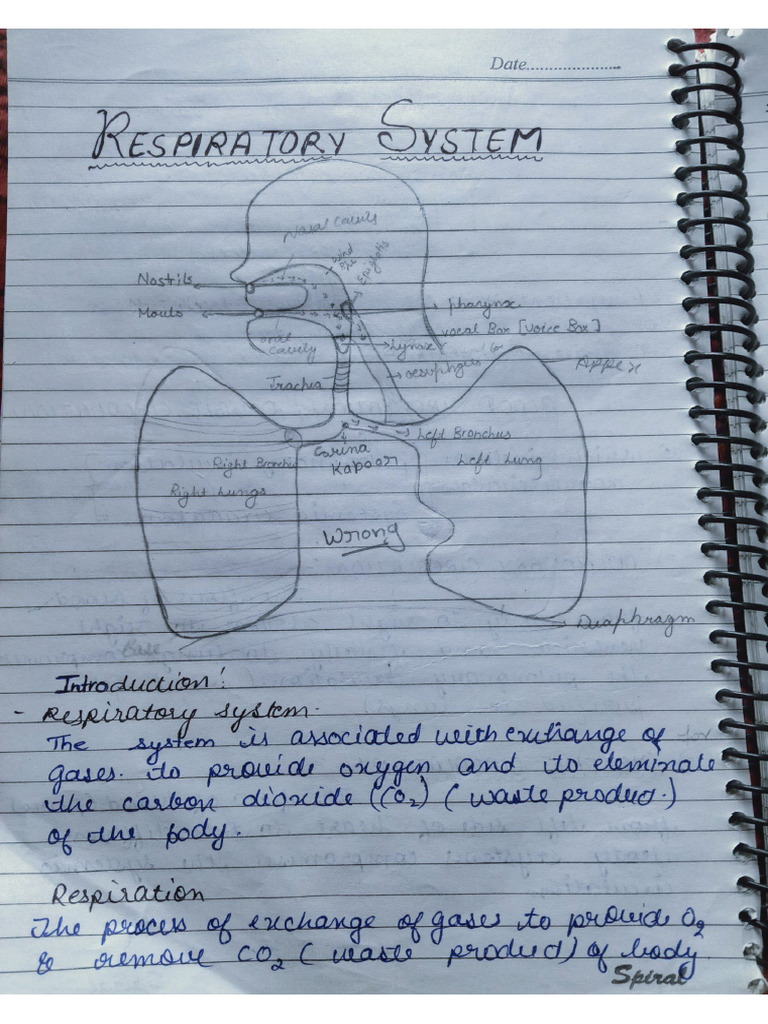 Date....................
RESPIRATORY SYSTEM
Nasal Cavity
Wind
Pipe
Epiglotis
Nostrils
Mouto
Pharynx
Vocal Box [Voice Box]
oral
cavity
Lynax
oesophgus
Appex
Trachea
Left Bronchus
Carina
Kapoor
Right Bronchus
Left Lung
Right Lungs
Wrong
Diaphragm
Base
Introduction:
- Respiratory system.
The system is associated with exchange of
gases. to provide oxygen and to eleminate
the carbon dioxide (CO2) (waste product.)
of the body.
Respiration
The process of exchange of gases to provide O2
& remove CO2 (waste product) of body.
Spiral